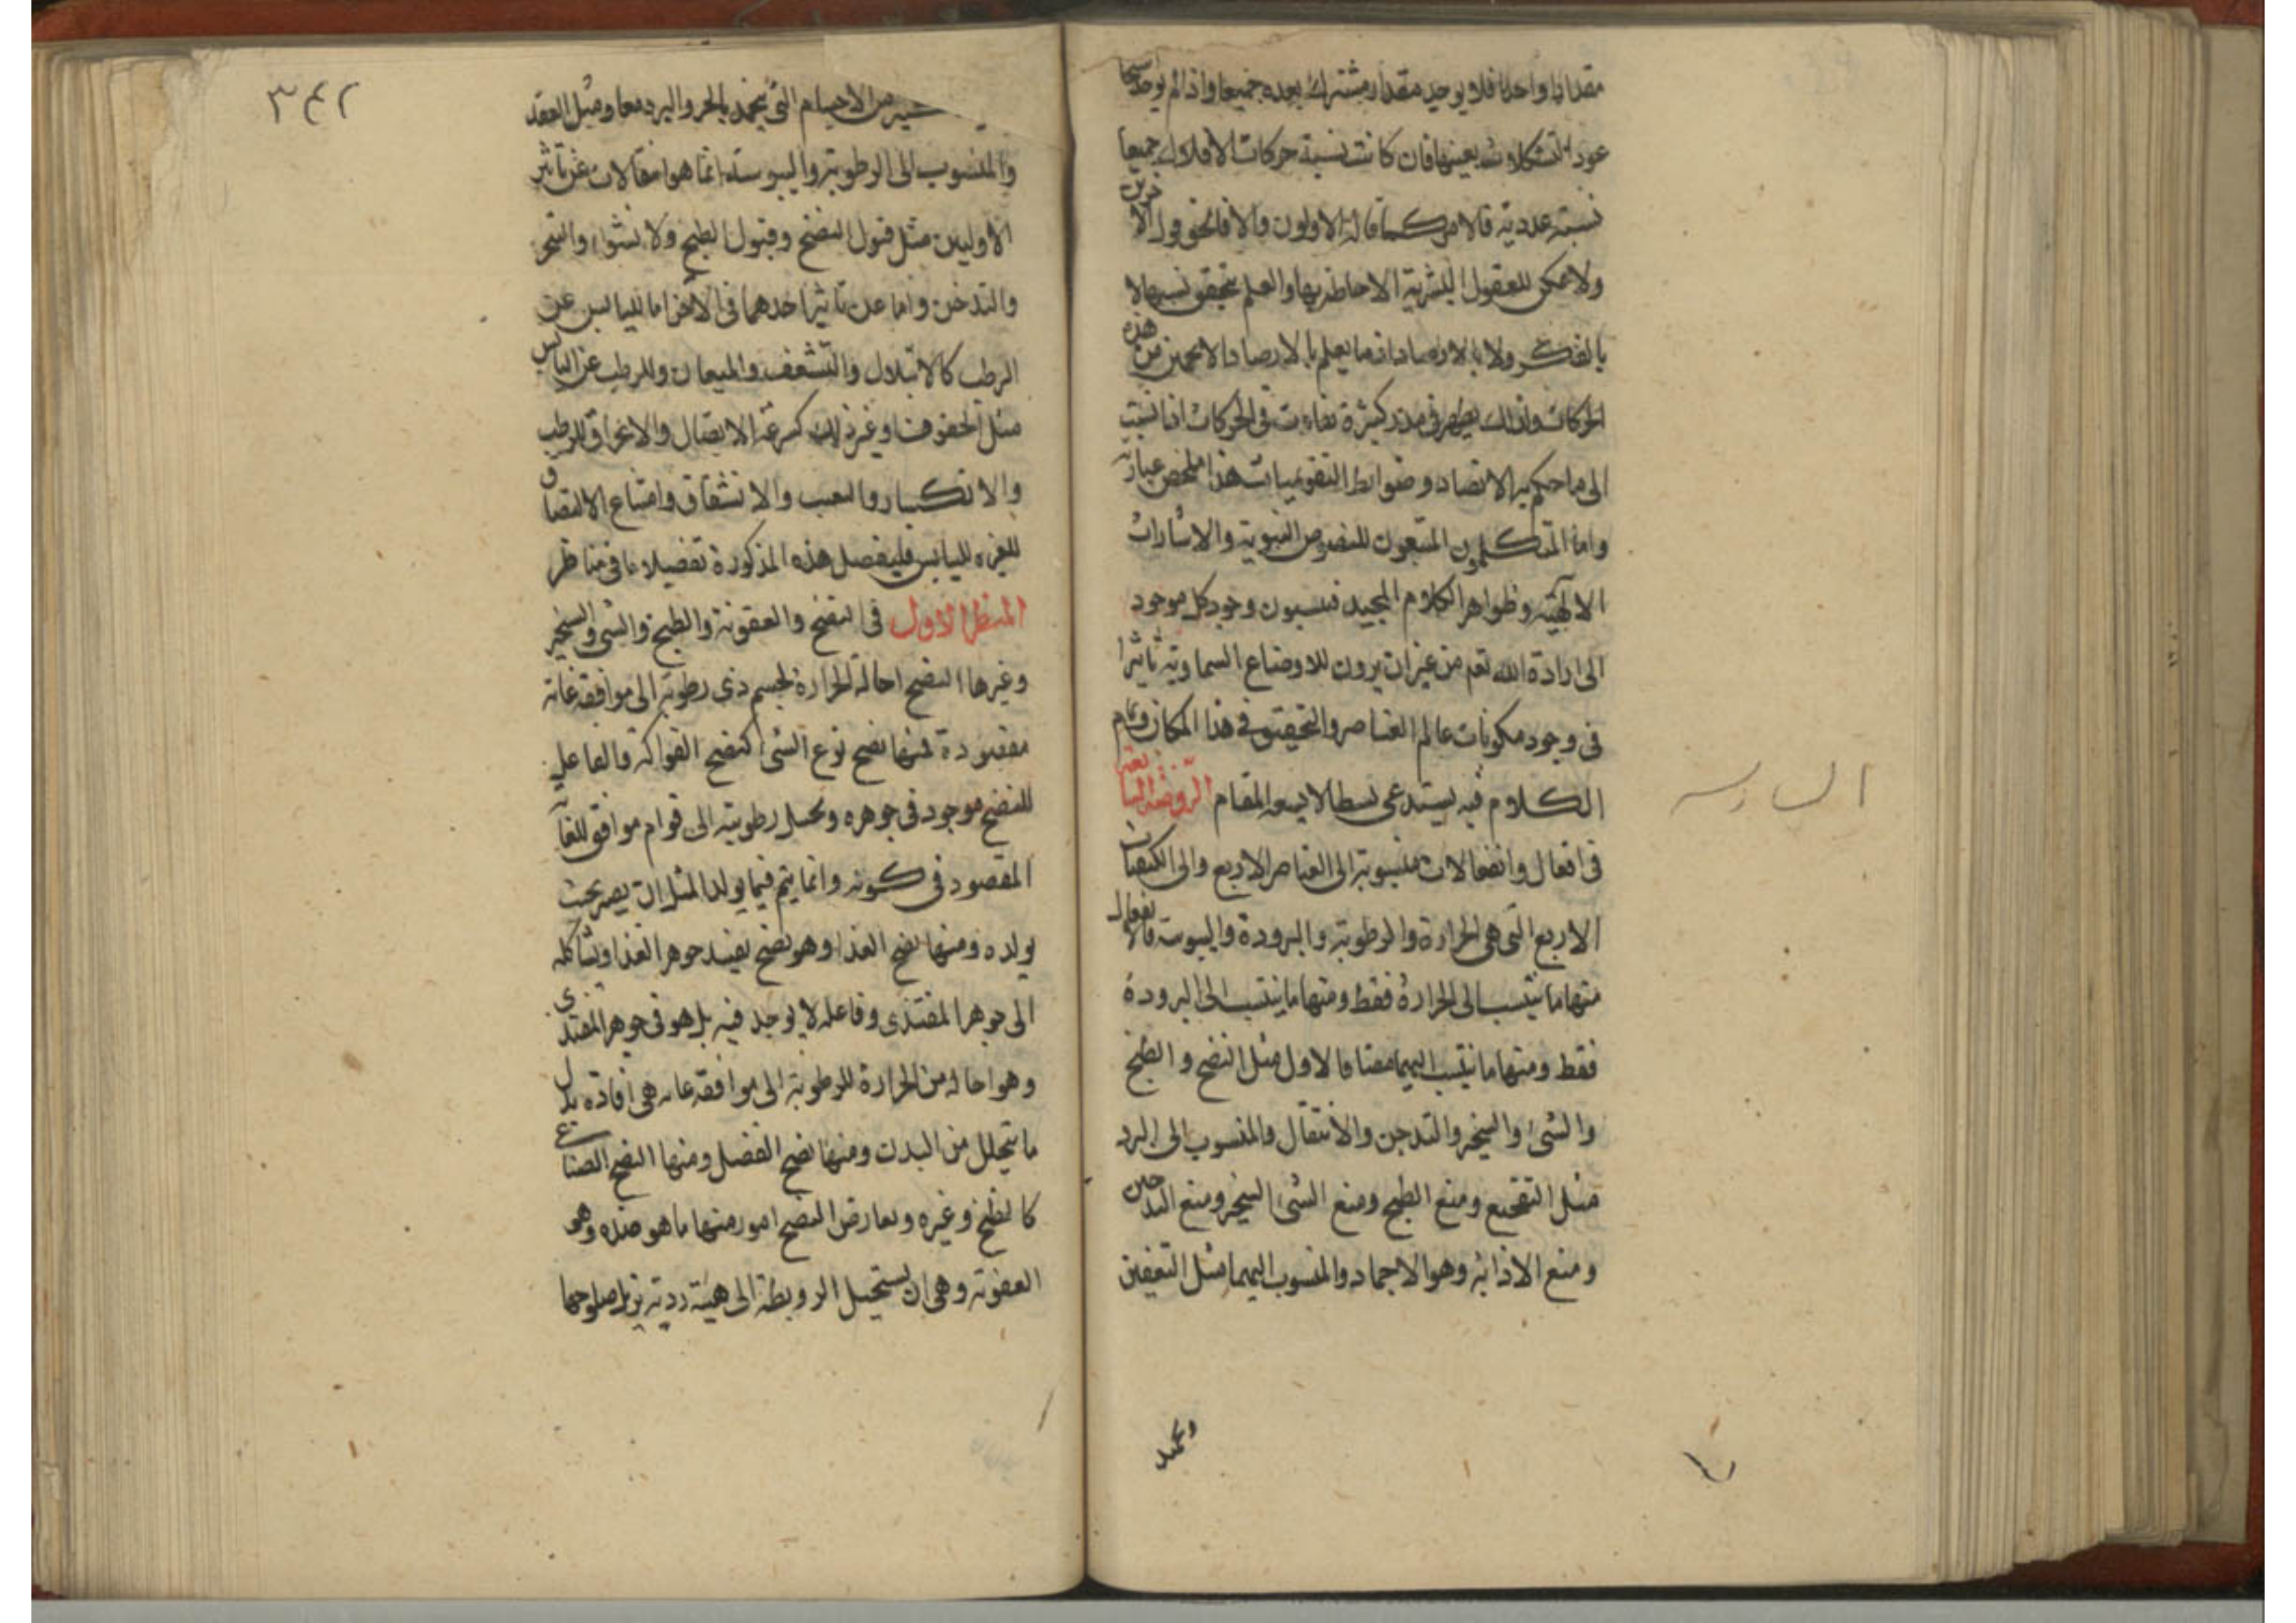 مقدارا واحدا فلا يوجد مقدار مشترك يعده جميعا واذا لم يوجد
عود التشكلات بعينها فان كانت نسبة حركات الافلاك جميعا
نسبة عددية فالامر كما قاله الاولون والا فالحق قول الاخرين
ولا يمكن للعقول البشرية الاحاطة بها والعلم بتحقق نسبها لا
بالفكر ولا بالارصاد اذ ما يعلم بالارصاد الا تخمين من هذه
الحركات ولذلك يظهر في مدد كثيرة تفاوت في الحركات اذا نسبت
الى ما حكم به الارصاد وضوابط التقويميات هذا ملخص عبارته
واما المتكلمون المتبعون للنصوص النبوية والاشارات
الالهية وظواهر الكلام المجيد فينسبون وجود كل موجود
الى ارادة الله تعم من غير ان يرون للاوضاع السماوية تاثيرا
في وجود مكونات عالم العناصر والتحقيق في هذا المكان وتمام
الكلام فيه يستدعى بسطا لا يسعه المقام الروضة السابعة
السادسه
في افعال وانفعالات منسوبة الى العناصر الاربع والى الكيفيات
الاربع التي هي الحرارة والرطوبة والبرودة واليبوسة فالافعال
منها ما ينتسب الى الحرارة فقط ومنها ما ينتسب الى البرودة
فقط ومنها ما ينتسب اليهما معا فالاول مثل النضج والطبخ
والشى والتبخير والتدخين والاشتعال والمنسوب الى البرد
مثل التفجيج ومنع الطبخ ومنع الشى التبخير ومنع التدخين
ومنع الاذابة وهو الاجماد والمنسوب اليهما مثل التعفين
٣٤٢
من الاجسام التي يجمد بالحر والبرد معا ومثل العقد
والمنسوب الى الرطوبة واليبوسة انما هو انفعالات عن تاثير
الاوليين مثل قبول النضج وقبول الطبخ والانشواء والتبخر
والتدخن واما عن تاثير احدهما في الاخر اما لليابس عن
الرطب كالابتلال والتنشف والميعان وللرطب عن اليابس
مثل الجفوف وغير ذلك كسرعة الاتصال والانخراق للرطب
والانكسار والتعب والانشقاق وامتناع الالتصاق
لغيره لليابس فليفصل هذه المذكورة تفصيلا ما في مناظر
المنظر الاول في النضج والعفونة والطبخ والشى والتبخير
وغيرها النضج احالة الحرارة لجسم ذى رطوبة الى موافقة غاية
مقصودة فمنها نضج نوع الشى كنضج الفواكه والفاعل
للنضج موجود في جوهره ويحيل رطوبته الى قوام موافق للغاية
المقصود في كونه وانما يتم فيما يولد المثل ان يصير بحيث
يولده ومنها نضج الغذا وهو نضج يفسد جوهر الغذا ويشاكله
الى جوهر المغتذى وفاعله لا يوجد فيه بل هو في جوهر المغتذى
وهو احالة من الحرارة للرطوبة الى موافقة غايه هي افادة بدل
ما يتحلل من البدن ومنها نضج الفضل ومنها النضج الصناعى
كالطبخ وغيره ويعارض النضج امور منها ما هو ضده وهو
العفونة وهي ان يستحيل الروبطة الى هيئة ردية تزيل صلوحها